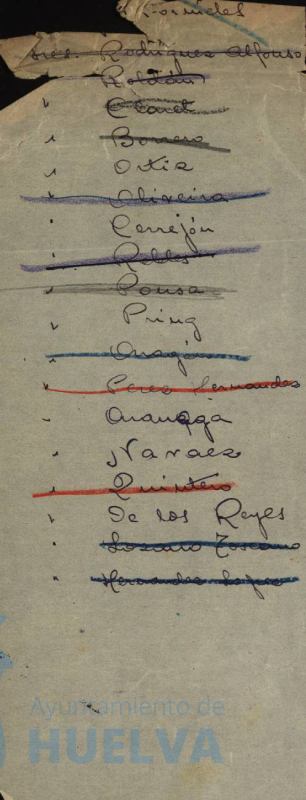 Sres. Rodriguez Alfonso
" Roldán
" Claret
" Borrero
" Ortiz
" Oliveira
" Cerrejón
" Robles
" Pousa
" Pring
" Aragón
" Perez Fernandez
" Aranaga
" Narvaez
" Quintero
" De los Reyes
" Lozano Toscano
" Hernandez Lopez
Ayuntamiento de
HUELVA